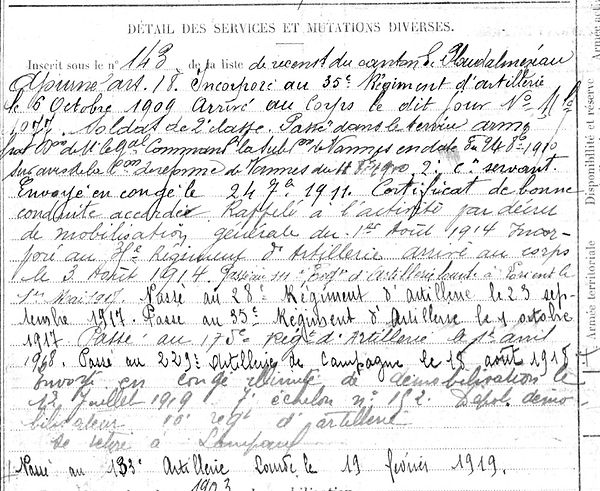 DÉTAIL DES SERVICES ET MUTATIONS DIVERSES.
Inscrit sous le n° 143 de la liste de recensnt du canton de Ploudalmézeau
Ajourné art. 18. Incorporé au 35e Régiment d'artillerie
le 6 Octobre 1909 Arrivé au Corps le dit jour No Mle
1077. Soldat de 2e classe. Passé dans le service armé
par Don de Mr le Gal Commandt la Subon de Vannes en date du 24 8bre 1910
sur avis de la Con de réforme de Vannes du 8bre 1910 2e cr servant.
Envoyé en congé le 24 7bre 1911. Certificat de bonne
conduite accordé Rappelé à l'activité par décret
de mobilisation générale du 1er Août 1914 Incor-
poré au Régiment d'Artillerie arrivé au corps
le 3 Août 1914. Passé au 111e Régt d'Artillerie Lourd à Lorient le
1er Mai 1917. Passé au 28e Régiment d'artillerie le 23 sep-
tembre 1917. Passé au 35e Régiment d'Artillerie le 1 octobre
1917 Passé au 175e Regt d'Artillerie le 1er avril
1918. Passé au 229e Artillerie de Campagne le 18 août 1918
Envoyé en congé illimité de démobilisation le
12 Juillet 1919 échelon n° 182 Dépôt démo-
bilisateur 10 regt d'artillerie
se retire à Lampaul
Passé au 133e Artillerie Lourde le 19 février 1919.
1903
Disponibilité et réserve
Armée territoriale